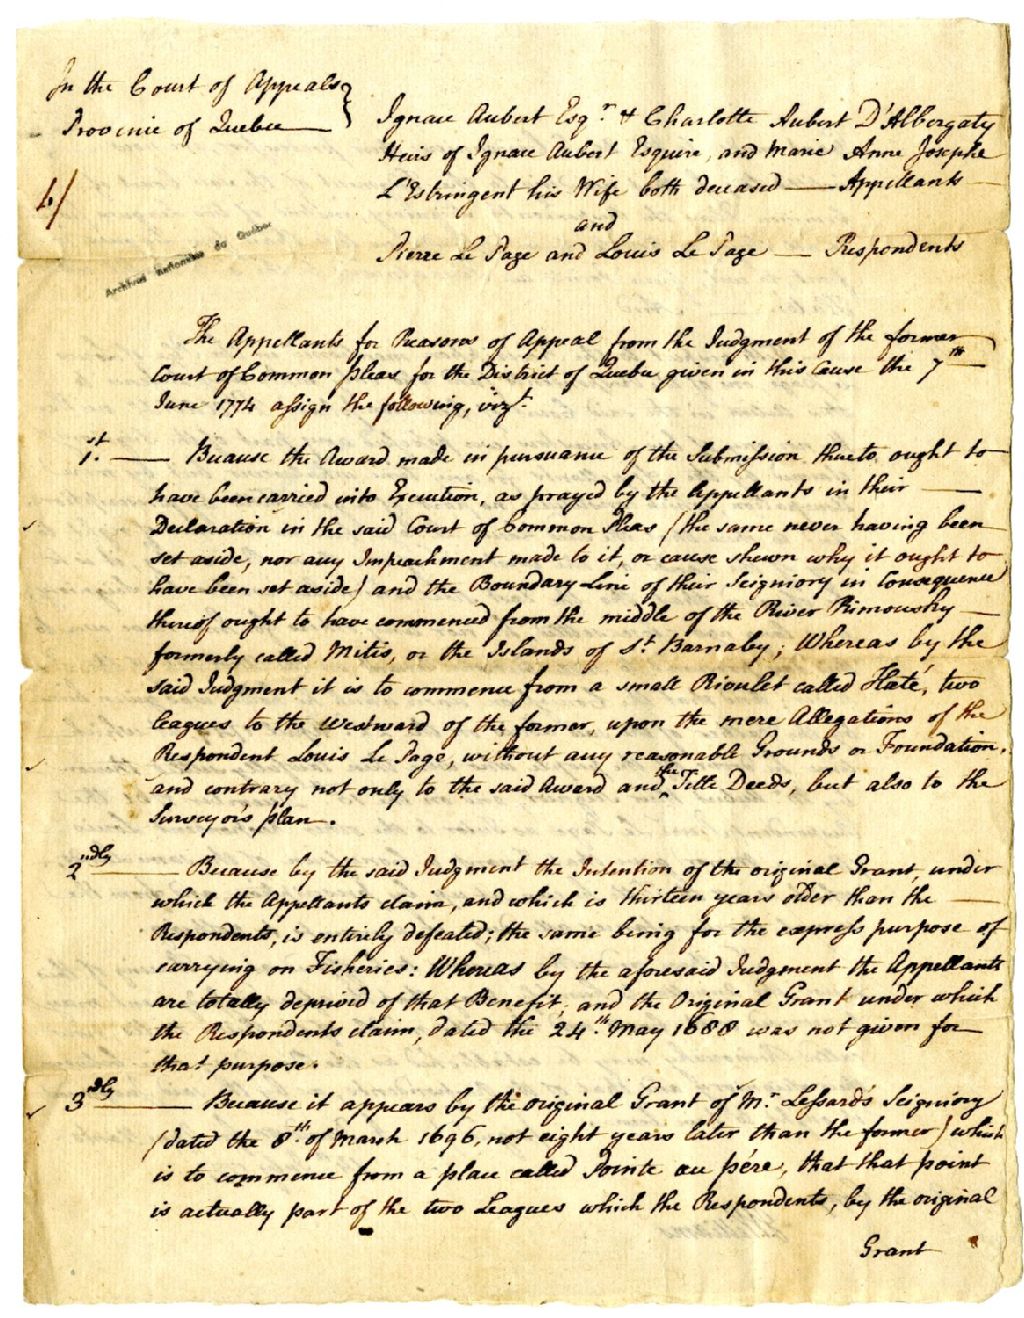 In the Court of Appeals
Province of Quebec
Ignace Aubert Esqr. & Charlotte Aubert D'Albergaty
Heirs of Ignace Aubert Esquire, and Marie Anne Josephe
L'Estringent his Wife both deceased — Appellants
and
Pierre Le Page and Louis Le Page — Respondents
Archives Nationales du Québec
The Appellants for Reasons of Appeal from the Judgment of the former
Court of Common Pleas for the District of Quebec given in this Cause the 7th
June 1774 assign the following, vizt.
1st. — Because the Award made in pursuance of the Submission thereto, ought to
have been carried into Execution, as prayed by the Appellants in their —
Declaration in the said Court of Common Pleas (the same never having been
set aside, nor any Impeachment made to it, or cause shewn why it ought to
have been set aside) and the Boundary Line of their Seigniory in Consequence
thereof ought to have commenced from the middle of the River Rimousky —
formerly called Mitis, or the Islands of St. Barnaby; Whereas by the
said Judgment it is to commence from a small Rivulet called Haté, two
leagues to the Westward of the former, upon the mere Allegations of the
Respondent Louis Le Page, without any reasonable Grounds or Foundation,
and contrary not only to the said Award and the Title Deeds, but also to the
Surveyor's plan.
2ndly — Because by the said Judgment the Intention of the original Grant, under
which the Appellants claim, and which is thirteen years older than the —
Respondents, is entirely defeated; the same being for the express purpose of
carrying on Fisheries: Whereas by the aforesaid Judgment the Appellants
are totally deprived of that Benefit, and the Original Grant under which
the Respondents claim, dated the 24th. May 1688 was not given for
that purpose.
3dly — Because it appears by the original Grant of Mr. Lessard's Seigniory
(dated the 8th. of March 1696, not eight years later than the former) which
is to commence from a place called Pointe au pére, that that point
is actually part of the two Leagues which the Respondents, by the original
Grant